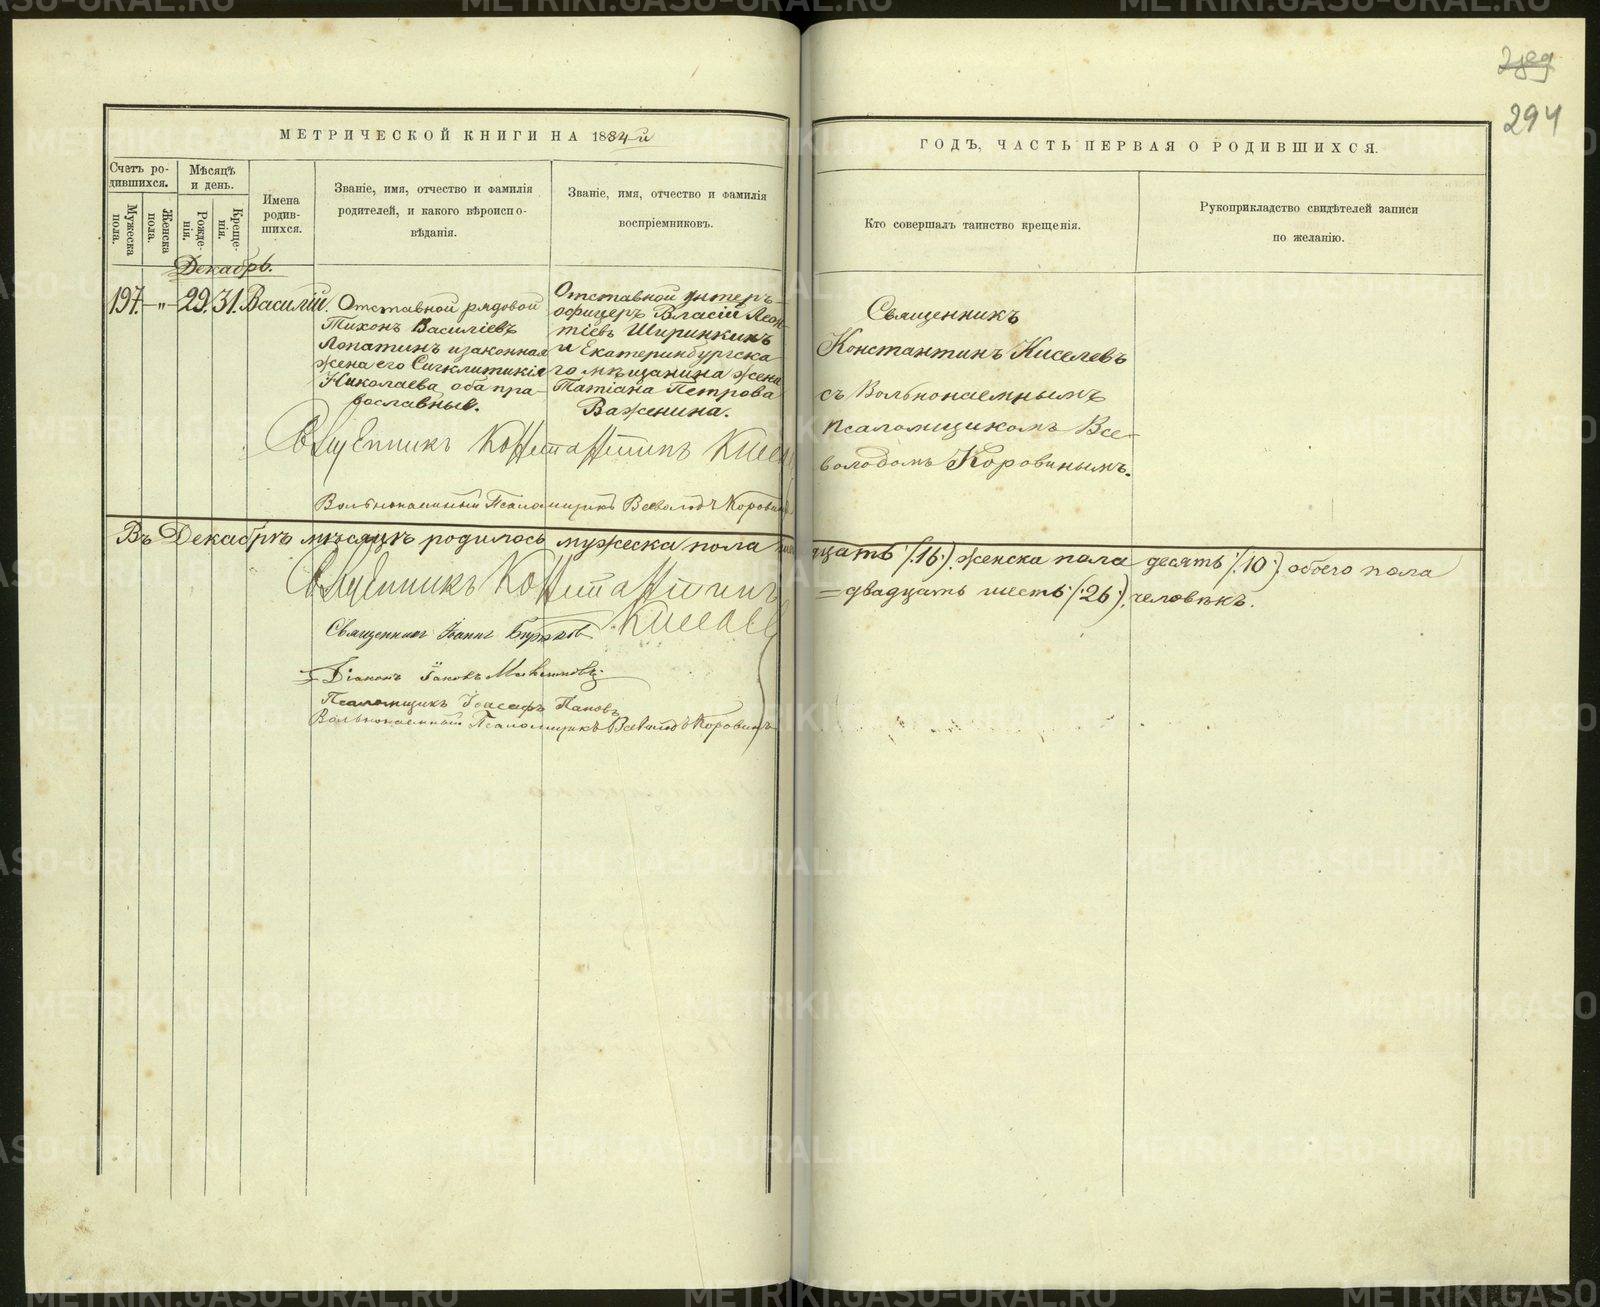 294
МЕТРИЧЕСКОЙ КНИГИ НА 1884й
ГОДЪ, ЧАСТЬ ПЕРВАЯ О РОДИВШИХСЯ.
Счетъ ро-
дившихся.
Мужеска пола.
Женска пола.
Мѣсяцъ
и день.
Рожде-
нія.
Креще-
нія.
Имена
родив-
шихся.
Званіе, имя, отчество и фамилія
родителей, и какого вѣроиспо-
вѣданія.
Званіе, имя, отчество и фамилія
воспріемниковъ.
Кто совершалъ таинство крещенія.
Рукоприкладство свидѣтелей записи
по желанію.
Декабрь.
197. „ 29. 31. Василій.
Отставной рядовой
Тихонъ Василіевъ
Лопатинъ и законная
жена его Сигклитикія
Николаева, оба пра-
вославные.
Отставной унтеръ-
офицеръ Власій Леон-
тіевъ Ширинкинъ
и Екатеринбургска
го мѣщанина жена
Татіана Петрова
Важенина.
Священникъ
Константинъ Киселевъ
съ Вольнонаемнымъ
псаломщикомъ Все-
володомъ Коровинымъ.
Священникъ Константинъ
Вольнонаемный Псаломщикъ Всеволодъ Коровинъ
Въ Декабрѣ мѣсяцѣ родилось мужеска пола
дцать (16), женска пола десять (10), обоего пола
=двадцать шесть (26), человѣкъ.
Священникъ Константинъ
Священникъ Іоаннъ
Діаконъ Іаковъ
Псаломщикъ Іоасафъ Поповъ
Вольнонаемный Псаломщикъ Всеволодъ Коровинъ
METRIKI.GASO-URAL.RU